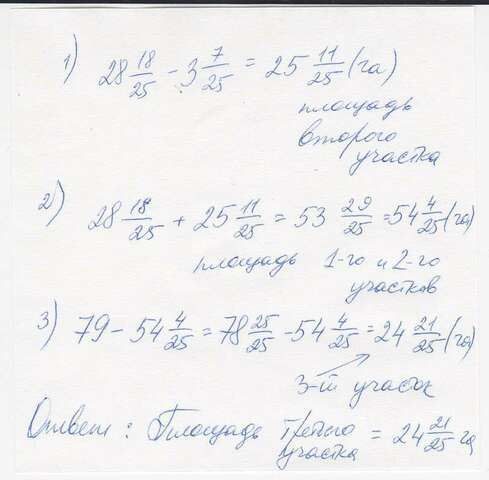 1) 28 18/25 - 3 7/25 = 25 11/25 (га)
площадь
второго
участка
2) 28 18/25 + 25 11/25 = 53 29/25 = 54 4/25 (га)
площадь 1-го и 2-го
участков
3) 79 - 54 4/25 = 78 25/25 - 54 4/25 = 24 21/25 (га)
3-й участок
Ответ: Площадь третьего участка = 24 21/25 га